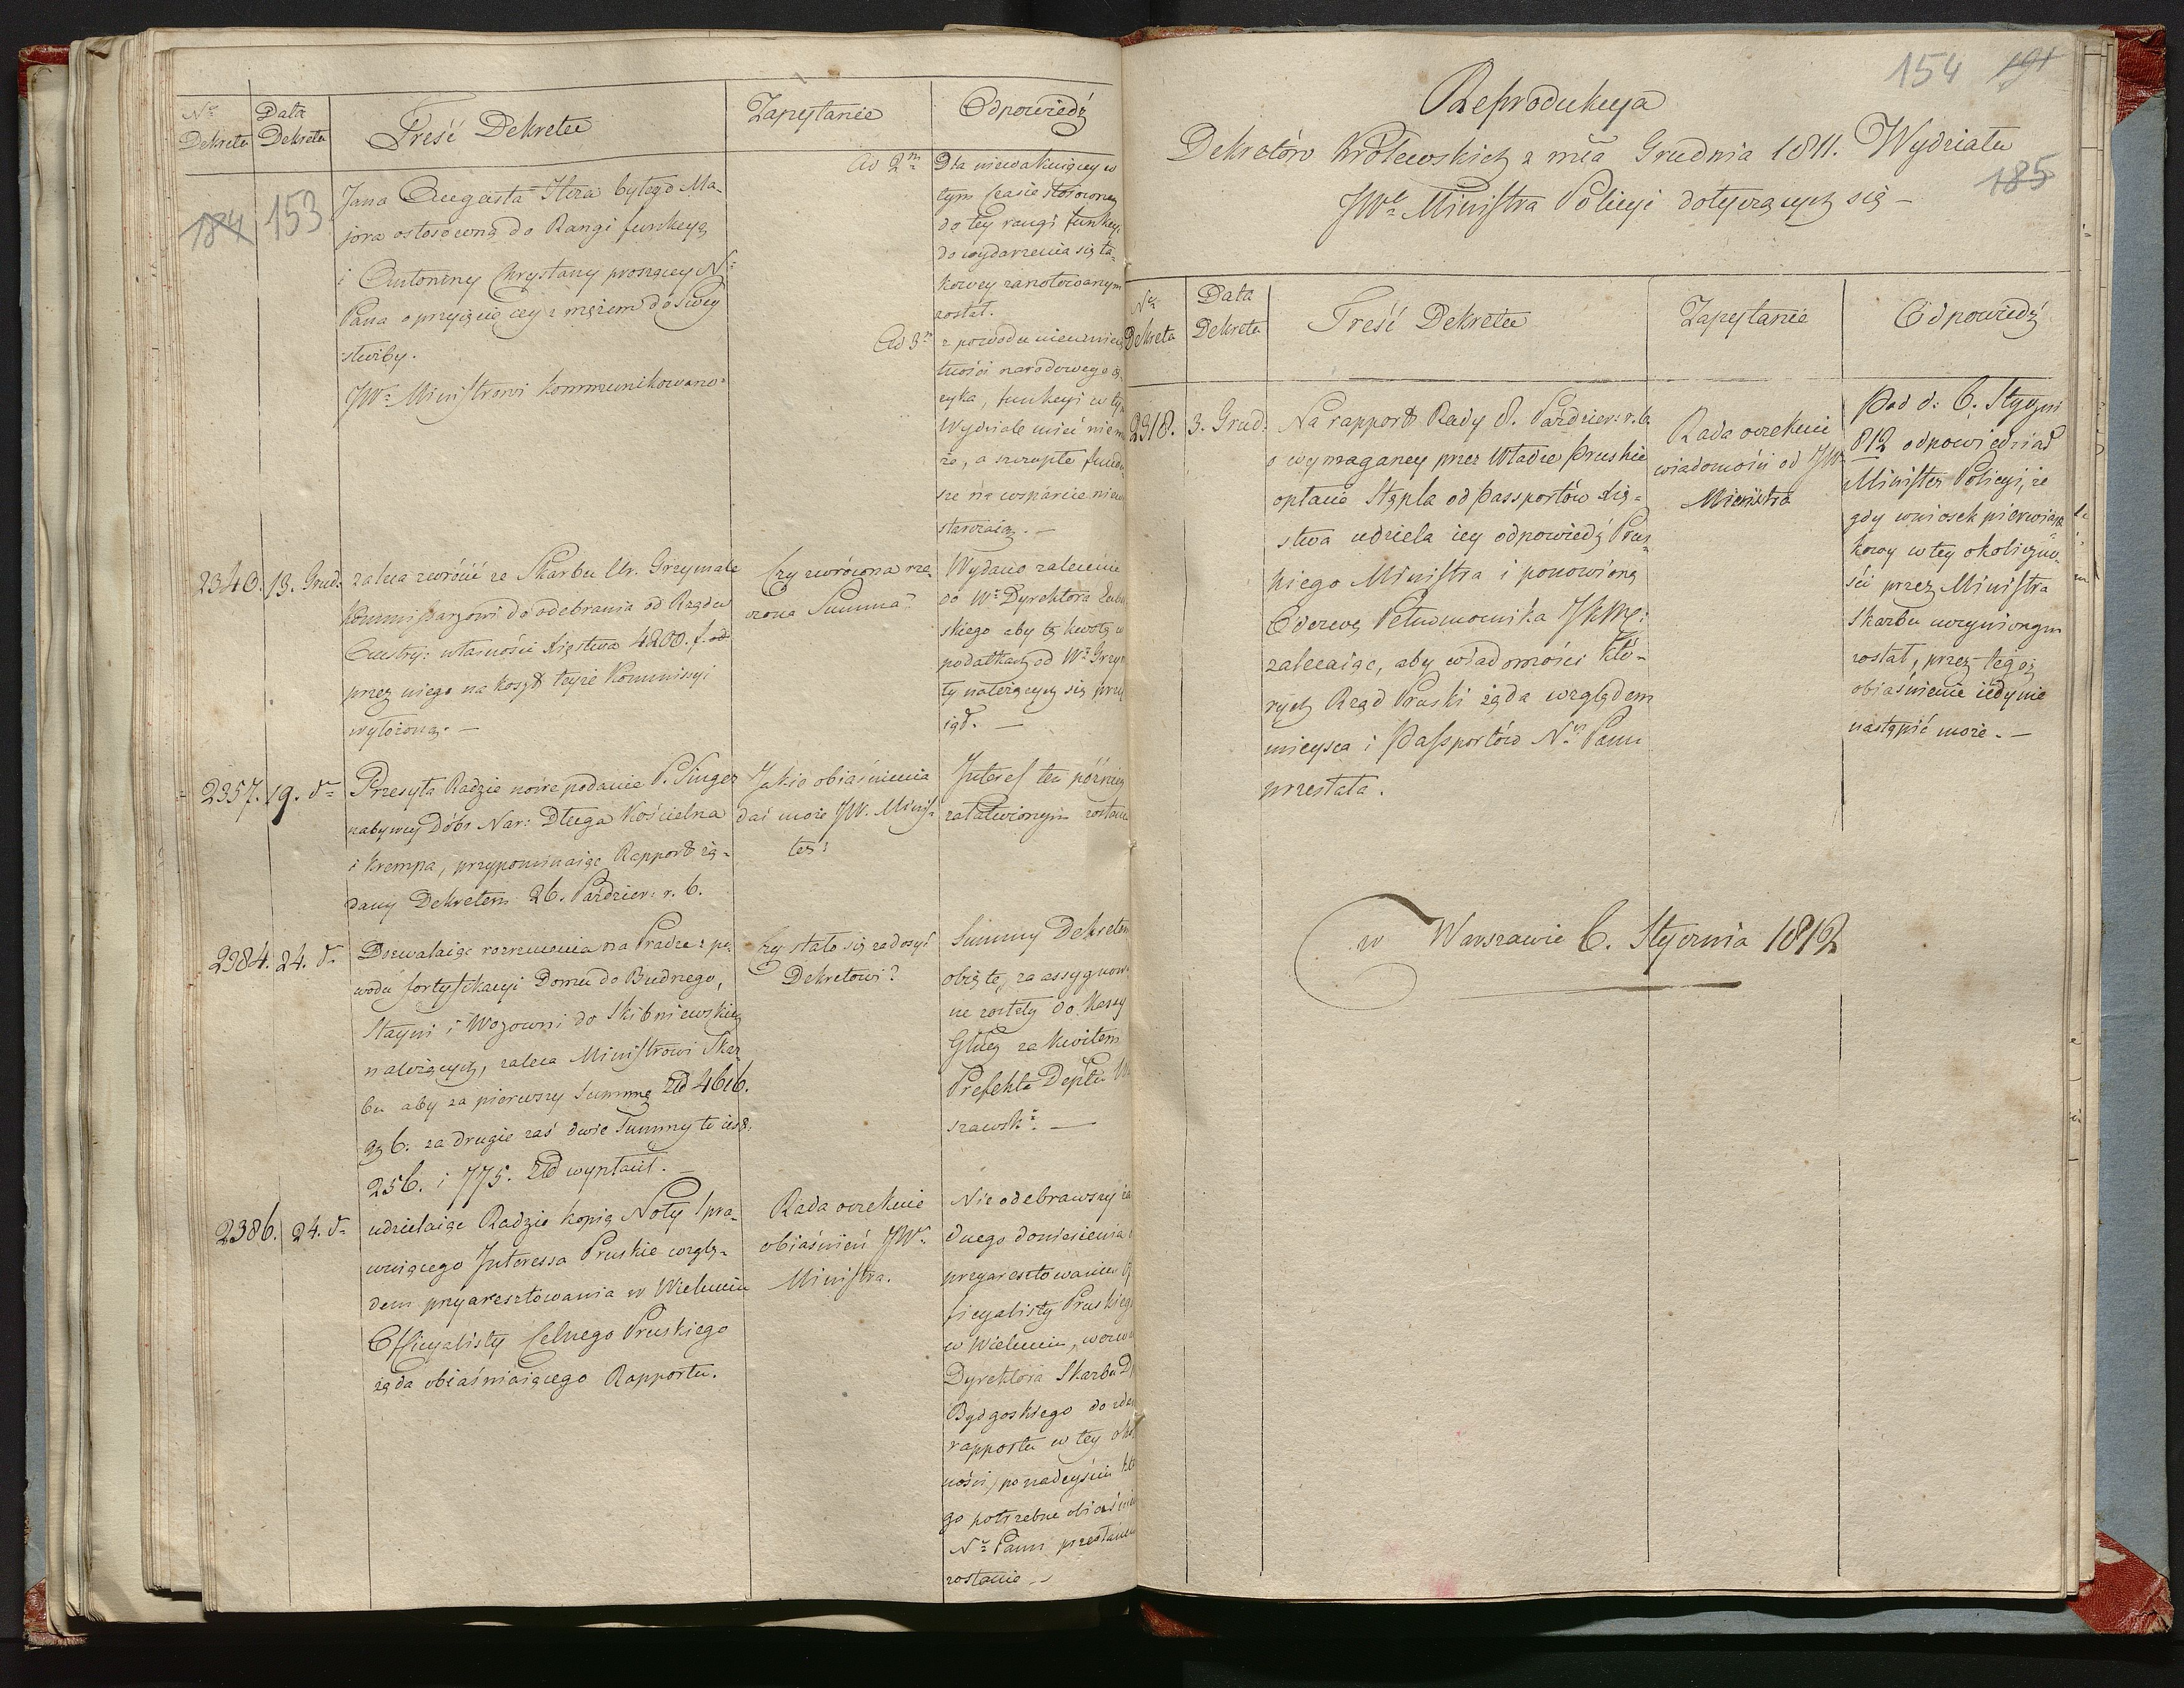 Nº Dekretu
Data Dekretu
Treść Dekretu
Zapytanie
Odpowiedź
184 153
Jana Augusta Itera byłego Ma-
jora ostosowną do Rangi funkcyą
i Antoniny Chrystany proszącey Nº
Pana o przyięcie iey z mężem do swey
służby.
JWº Ministrowi kommunikowano.
Ad 2m
Dla niewakuiącey w
tym czasie stosowney
do tey rangi funkcyi
do wydarzenia się ta-
kowey zanotowanym
został.
Ad 3m
z powodu nieumieię
tności narodowego ię
zyka, funkcyi w tym
Wydziale mieć niemo
że, a szczupłe fundu
sze na wsparcie niewy
starczaią. —
2340. 13. Grud.
zaleca zwrócić ze Skarbu Ur. Grzymale
Kommissarzowi do odebrania od Rządu
Austry: własności Xięstwa 4200. f. od
przez niego na koszt teyże Kommissyi
wyłożoną. —
Czy zwrócona rze-
czona Summa?
Wydano zalecenie
do Wº Dyrektora Lubel
skiego aby tę kwotę w
podatkach od Wº Grzym
ły należących się przy
iął. —
2357. 19. dº
Przesyła Radzie nowe podanie P. Singer
nabywcy Dóbr Nar: Długa Kościelna
i Krempa, przypominaiąc Rapport żą-
dany Dekretem 26. Paździer: r. b.
Jakie obiaśnienia
dać może JW. Minis-
ter?
Interess ten później
załatwionym zostanie
2384. 24. dº
Dozwalaiąc rozrzucenia na Pradze z po-
wodu fortyfikacyi Domu do Budnego,
Stayni i Wozowni do Skibniewskiey
należących, zaleca Ministrowi Skar-
bu aby za pierwszy Summę Zł 4616.
gr 6. za drugie zaś dwie Summy to iest:
256. i 775. Zł wypłacił. —
Czy stało się zadosyć
Dekretowi?
Summy Dekretem
obięte, za assygnowa
ne zostały do Kassy
Główy za kwitem
Prefekta Deptu War
szawskº. —
2386. 24. dº
udzielaiąc Radzie kopią Noty spra-
wuiącego Interessa Pruskie wzglę-
dem przyaresztowania w Wieluniu
Officyalisty Celnego Pruskiego
żąda obiaśniaiącego Rapportu.
Rada oczekuie
obiaśnień JWº
Ministra.
Nie odebrawszy ża
dnego doniesienia o
przyaresztowaniu Of
ficyalisty Pruskiego
w Wieluniu, wezwał
Dyrektora Skarbu Dp
Bydgoskiego do zdania
rapportu w tey oko
ności, po nadeyściu któ
go potrzebne obiaśnie
Nº Panu przesłane
zostanie —
154 191
185
Reprodukcya
Dekretów Królewskich z mca Grudnia 1811. Wydziału
JWº Ministra Policyi dotyczących się —
Nº Dekretu
Data Dekretu
Treść Dekretu
Zapytanie
Odpowiedź
2318. 3. Grud:
Na rapport Rady 8. Paździer: r. b.
o wymaganey przez Władze Pruskie
opłacie Stępla od Passportów Xię-
stwa udziela iey odpowiedź Prus-
kiego Ministra i ponowioną
Odezwę Pełnomocnika JKMci
zalecaiąc, aby wiadomości któ-
rych Rząd Pruski żąda względem
mieysca i Passportów Nº Panu
przesłała.
Rada oczekuie
wiadomości od JWº
Ministra
Pod d: 6. Stycznia
812 odpowiedział
Minister Policyi, że
gdy wniosek pierwiast-
kowy w tey okoliczno-
ści przez Ministra
Skarbu uczynionym
został, przez tegoż
obiaśnienie iedynie
nastąpić może. —
w Warszawie 6. Stycznia 1812